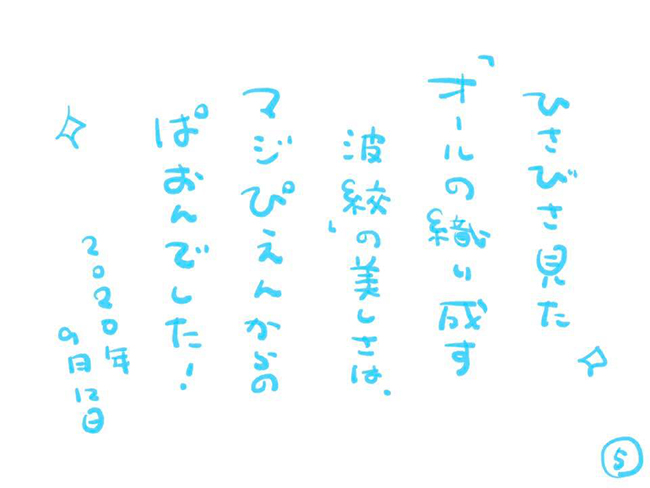 ひさびさ見た
「オールの織り成す
波紋」の美しさは、
マジぴえんからの
ぱおんでした!
2020年
9月12日
5